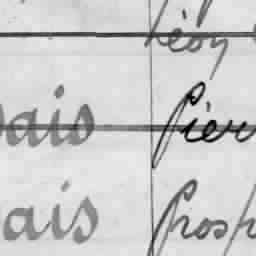 Léon
ais Pier
ais Prosp